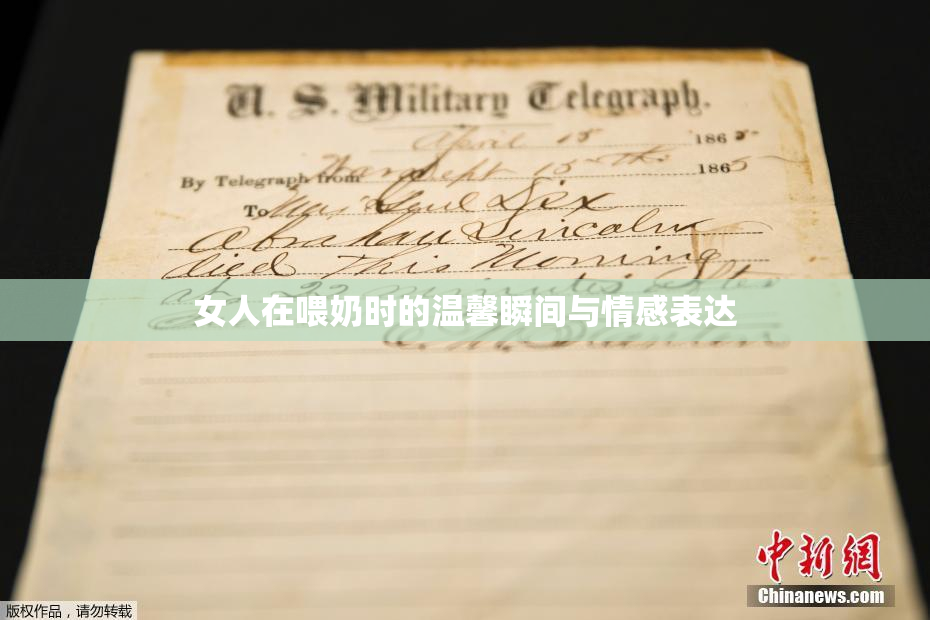 U. S. Military Telegraph.
April 15 1865
By Telegraph from War Dept 15th 1865
To Maj Genl Dix
Abraham Lincoln
died This Morning
at 22 minutes after
女人在喂奶时的温馨瞬间与情感表达
Stanton
中新网
Chinanews.com
版权作品，请勿转载